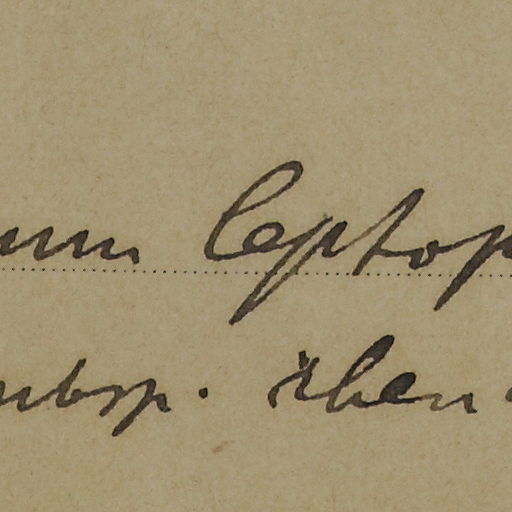 um leptop
ubsp. rhen